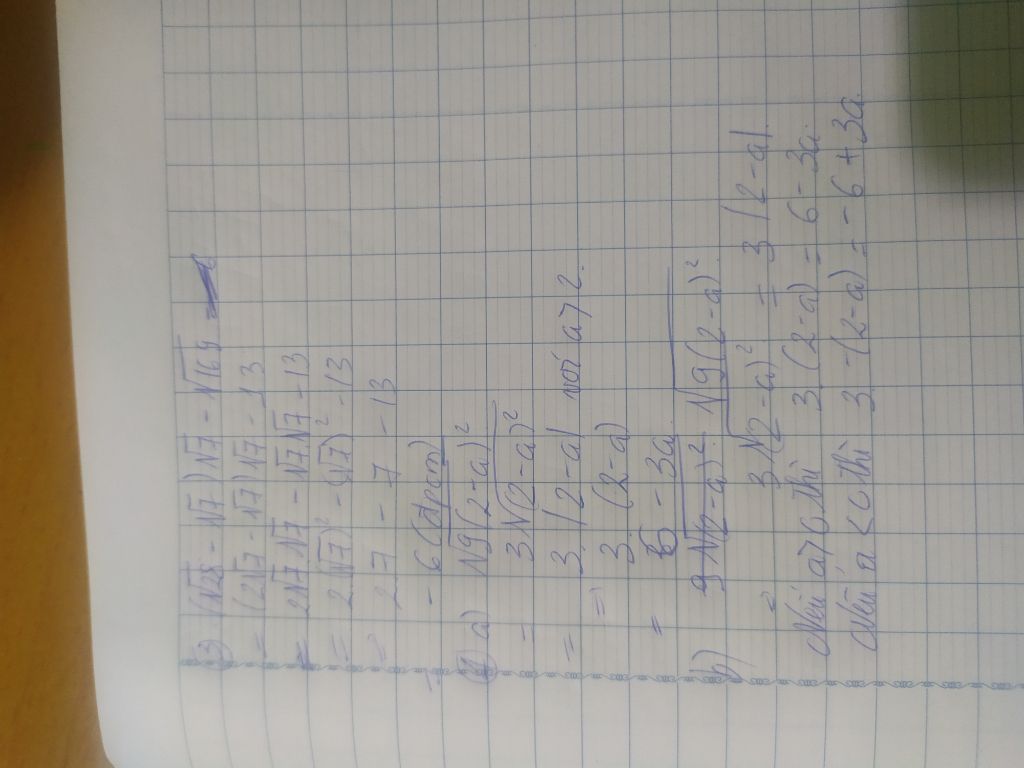 3) (√28 - √7)√7 - √169
= (2√7 - √7)√7 - 13
= 2√7√7 - √7√7 - 13
= 2(√7)² - (√7)² - 13
= 2.7 - 7 - 13
= - 6 (đpcm)
4) a) √9(2-a)²
= 3√(2-a)²
= 3. |2-a| với a > 2.
= 3. (2-a)
= 6 - 3a
b) √9(2-a)²
= 3√(2-a)² = 3 |2-a|.
Nếu a > 0 thì 3.(2-a) = 6 - 3a.
Nếu a < 0 thì 3 -(2-a) = - 6 + 3a.